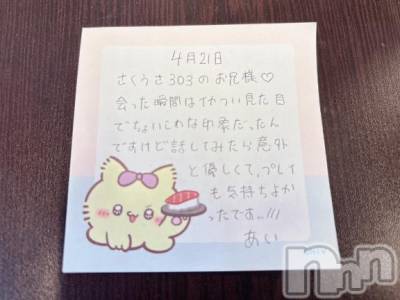 4月21日
さくらさ303のお兄様♡
会った瞬間はイカつい見た目
でちょいこわな印象だったん
ですけど話してみたら意外
と優しくて、プレイ
も気持ちよか
ったです..///
あい